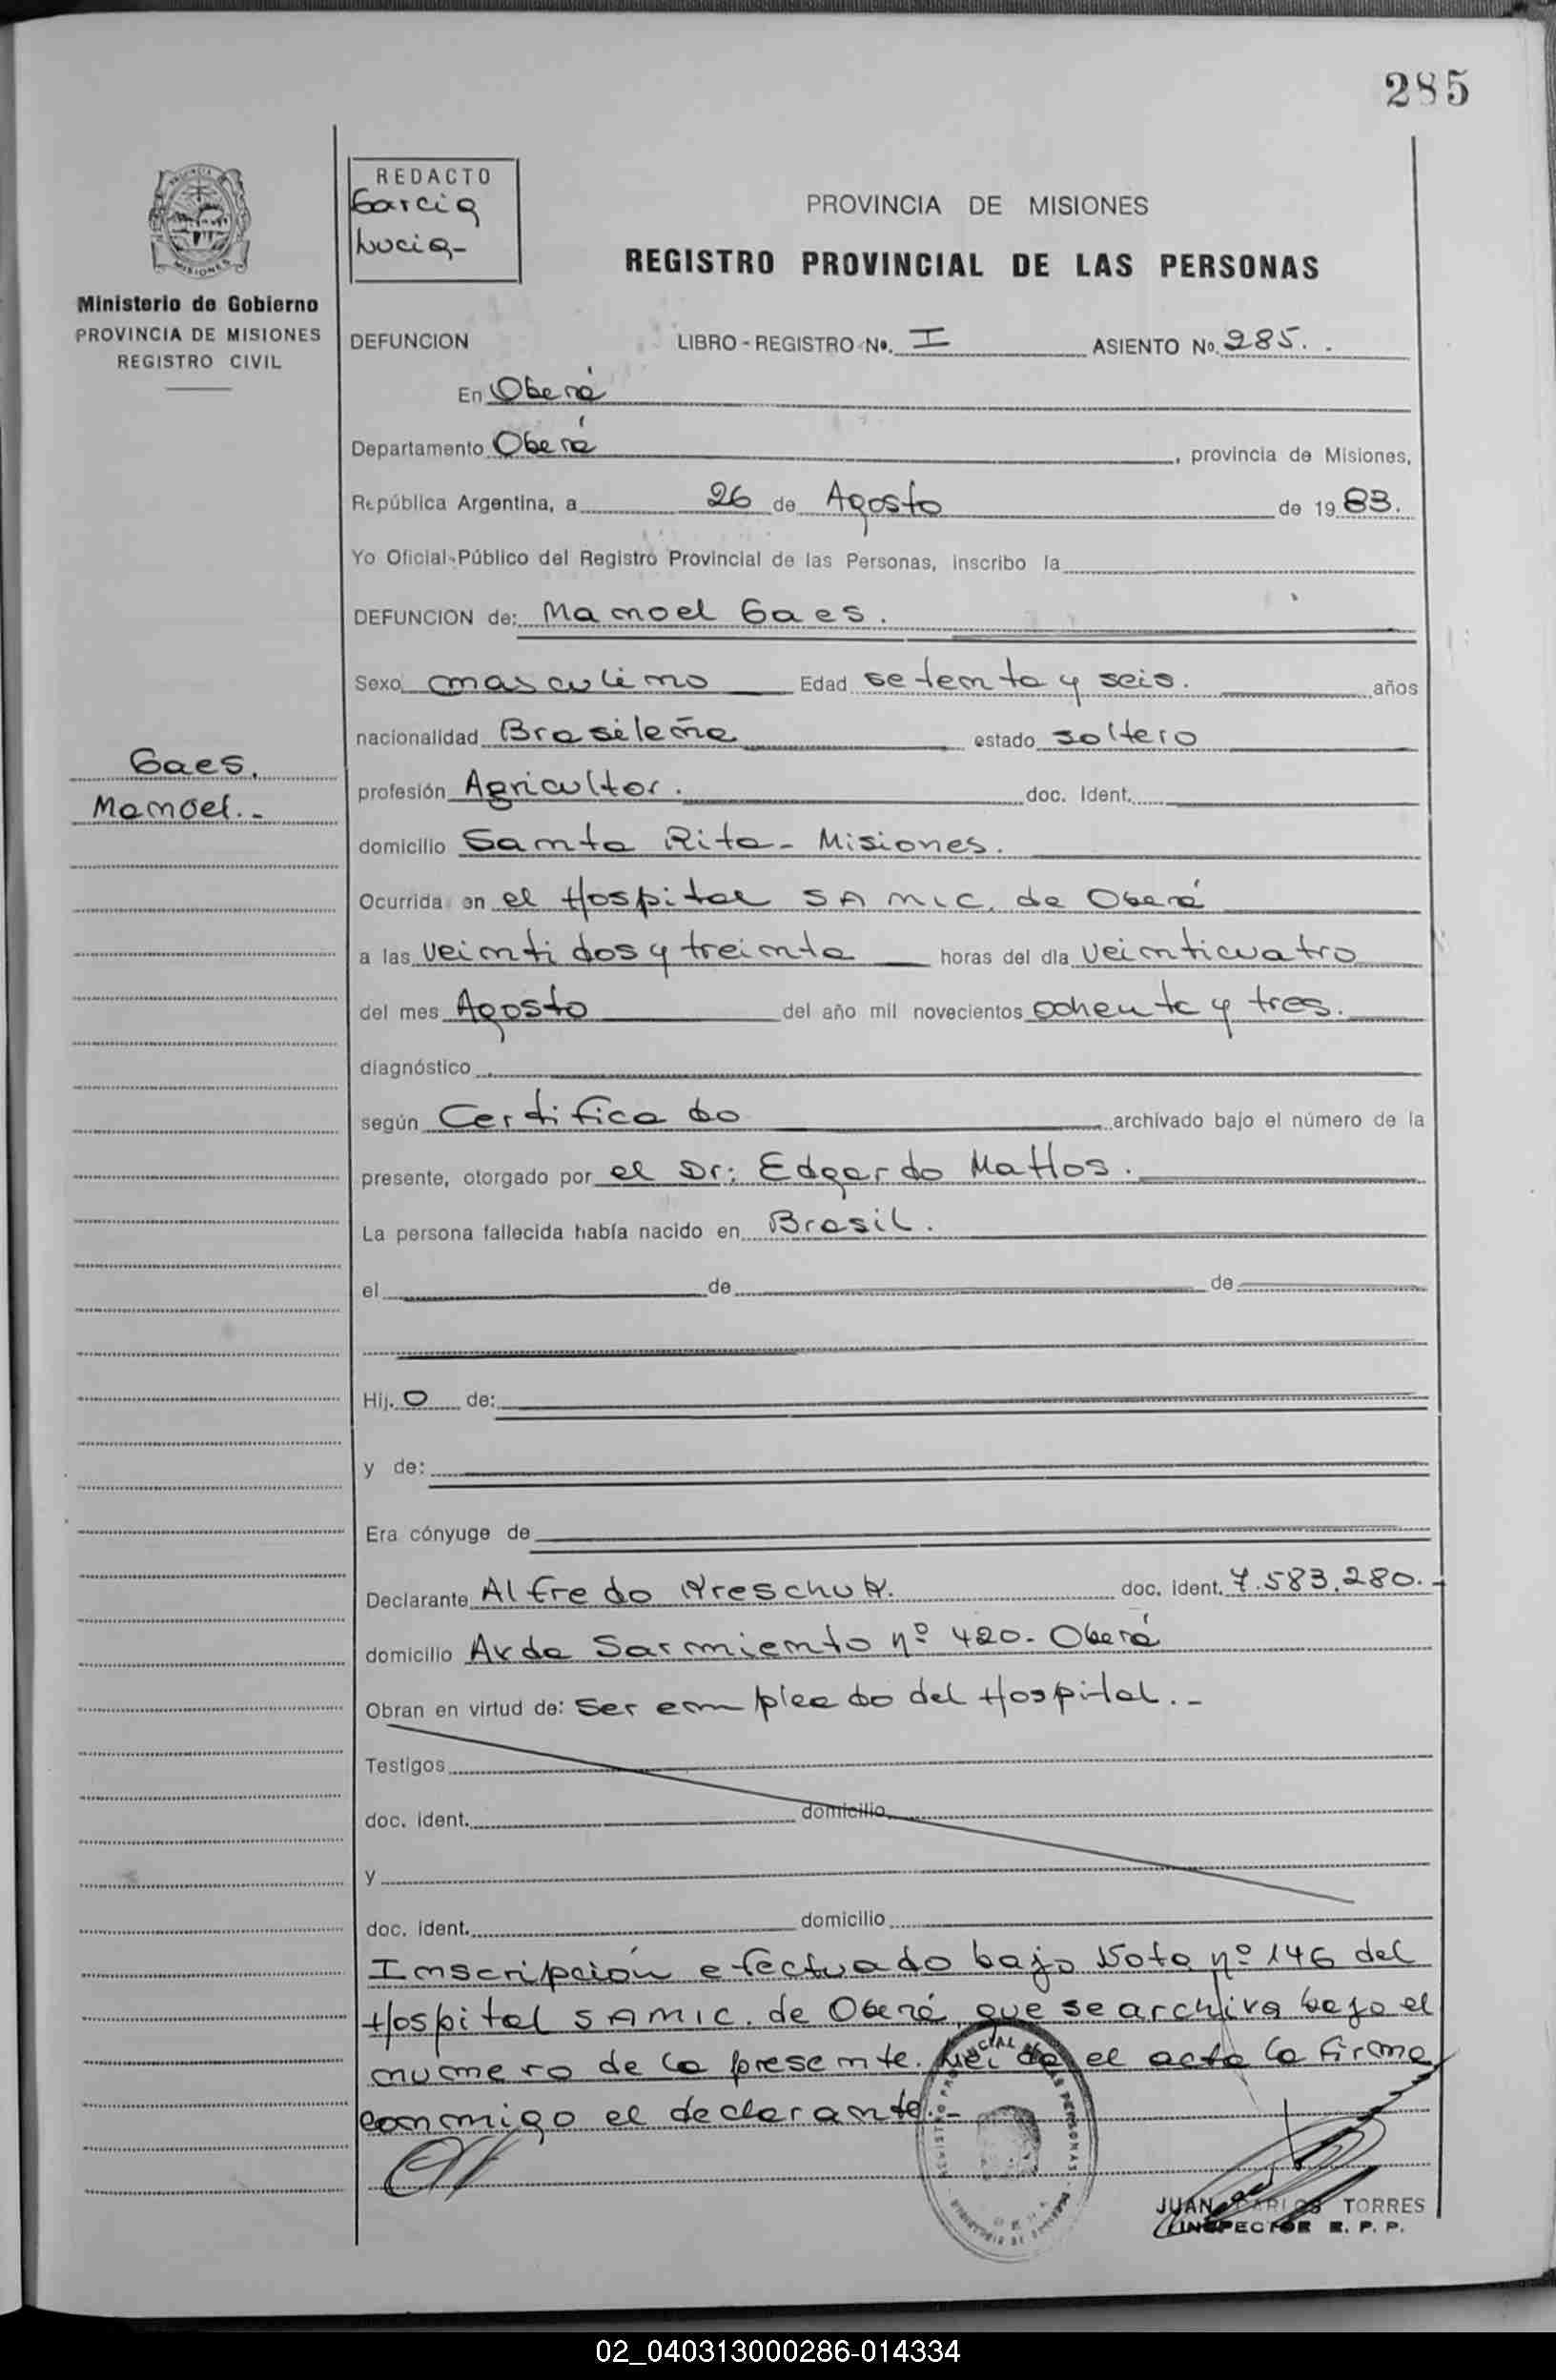 285
REDACTO
Garcia
Lucia-
PROVINCIA DE MISIONES
REGISTRO PROVINCIAL DE LAS PERSONAS
MISIONES
Ministerio de Gobierno
PROVINCIA DE MISIONES
REGISTRO CIVIL
DEFUNCION LIBRO - REGISTRO Nº. I ASIENTO Nº. 285.
En Oberá
Departamento Oberá, provincia de Misiones,
República Argentina, a 26 de Agosto de 1983.
Yo Oficial Público del Registro Provincial de las Personas, inscribo la
DEFUNCION de: Manoel Gaes.
Sexo masculino Edad setenta y seis. años
nacionalidad Brasileña estado soltero
Gaes.
Manoel.-
profesión Agricultor. doc. ident.
domicilio Santa Rita - Misiones.
Ocurrida en el Hospital SAMIC. de Oberá
a las veinti dos y treinta horas del día veinticuatro
del mes Agosto del año mil novecientos ochenta y tres.
diagnóstico
según Certificado archivado bajo el número de la
presente, otorgado por el Dr: Edgardo Mattos.
La persona fallecida había nacido en Brasil.
el de de
Hij.o de:
y de:
Era cónyuge de
Declarante Alfredo doc. ident. 7.583.280.-
domicilio Avda Sarmiento nº 420- Oberá
Obran en virtud de: Ser empleado del Hospital.-
Testigos
doc. ident. domicilio
y
doc. ident. domicilio
Inscripción efectuado bajo Nota nº 146 del
Hospital SAMIC. de Oberá, que se archiva bajo el
numero de la presente. Leida el acta la firma
conmigo el declarante.-
JUAN CARLOS TORRES
INSPECTOR R. P. P.
02_040313000286-014334